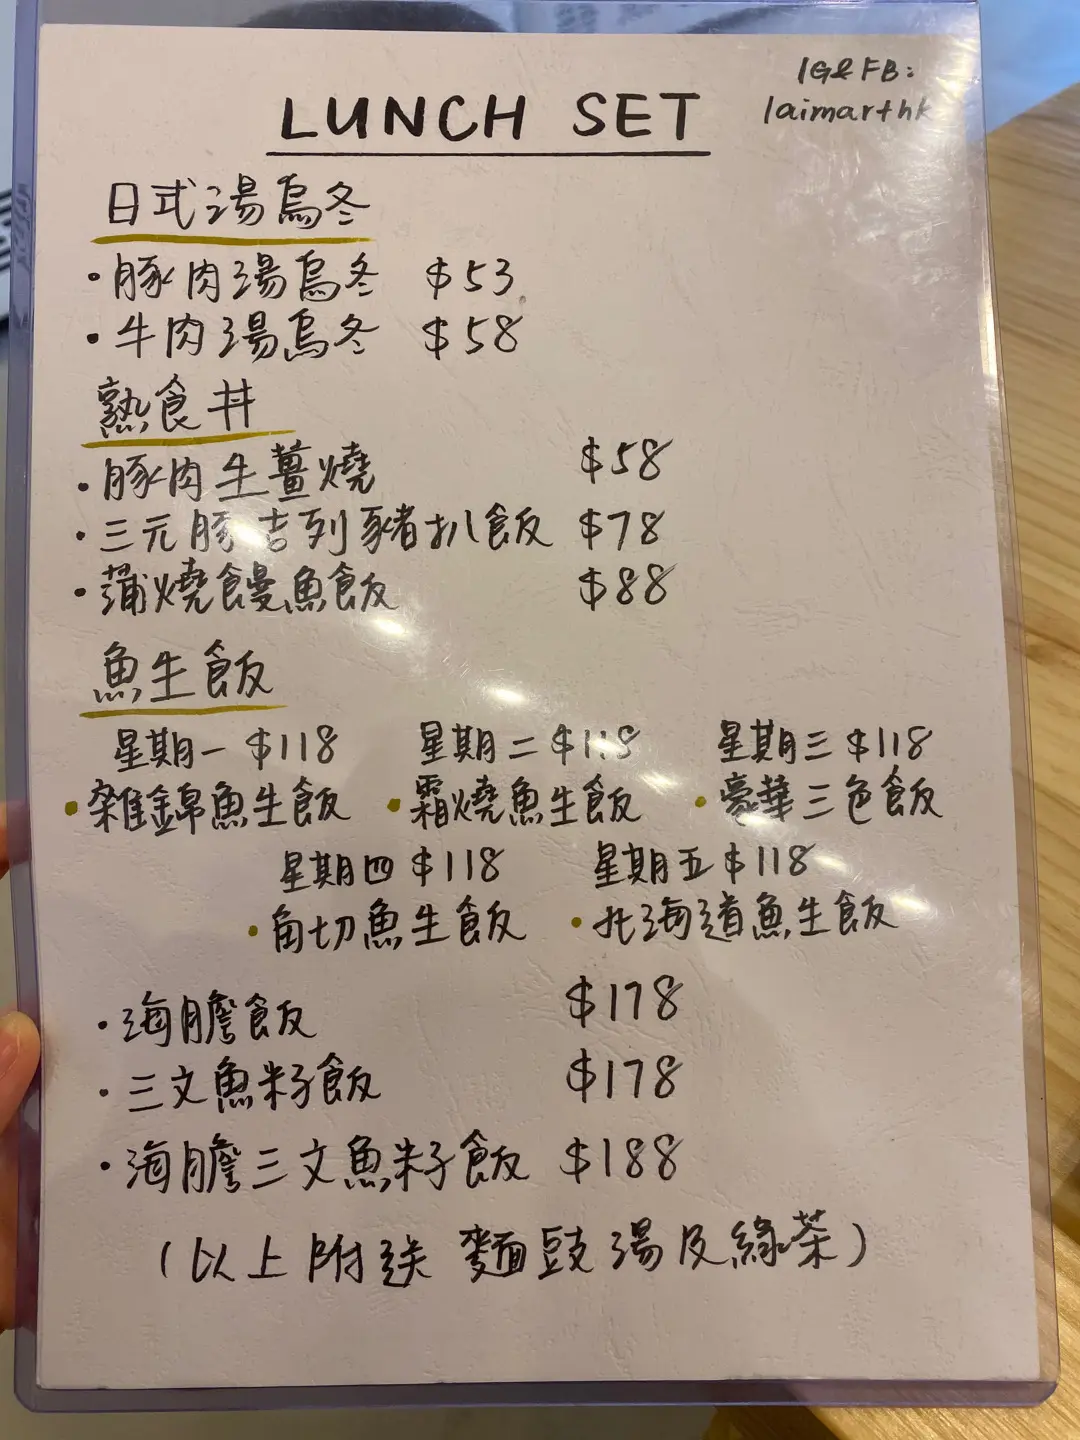 IG&FB:
laimarthk
LUNCH SET
日式湯烏冬
・豚肉湯烏冬 $53
・牛肉湯烏冬 $58
熟食丼
・豚肉生薑燒 $58
・三元豚吉列豬扒飯 $78
・蒲燒饅魚飯 $88
魚生飯
星期一 $118 星期二 $118 星期三 $118
・雜錦魚生飯 ・霜燒魚生飯 ・豪華三色飯
星期四 $118 星期五 $118
・角切魚生飯 ・北海道魚生飯
・海膽飯 $178
・三文魚籽飯 $178
・海膽三文魚籽飯 $188
(以上附送 麵豉湯及綠茶)